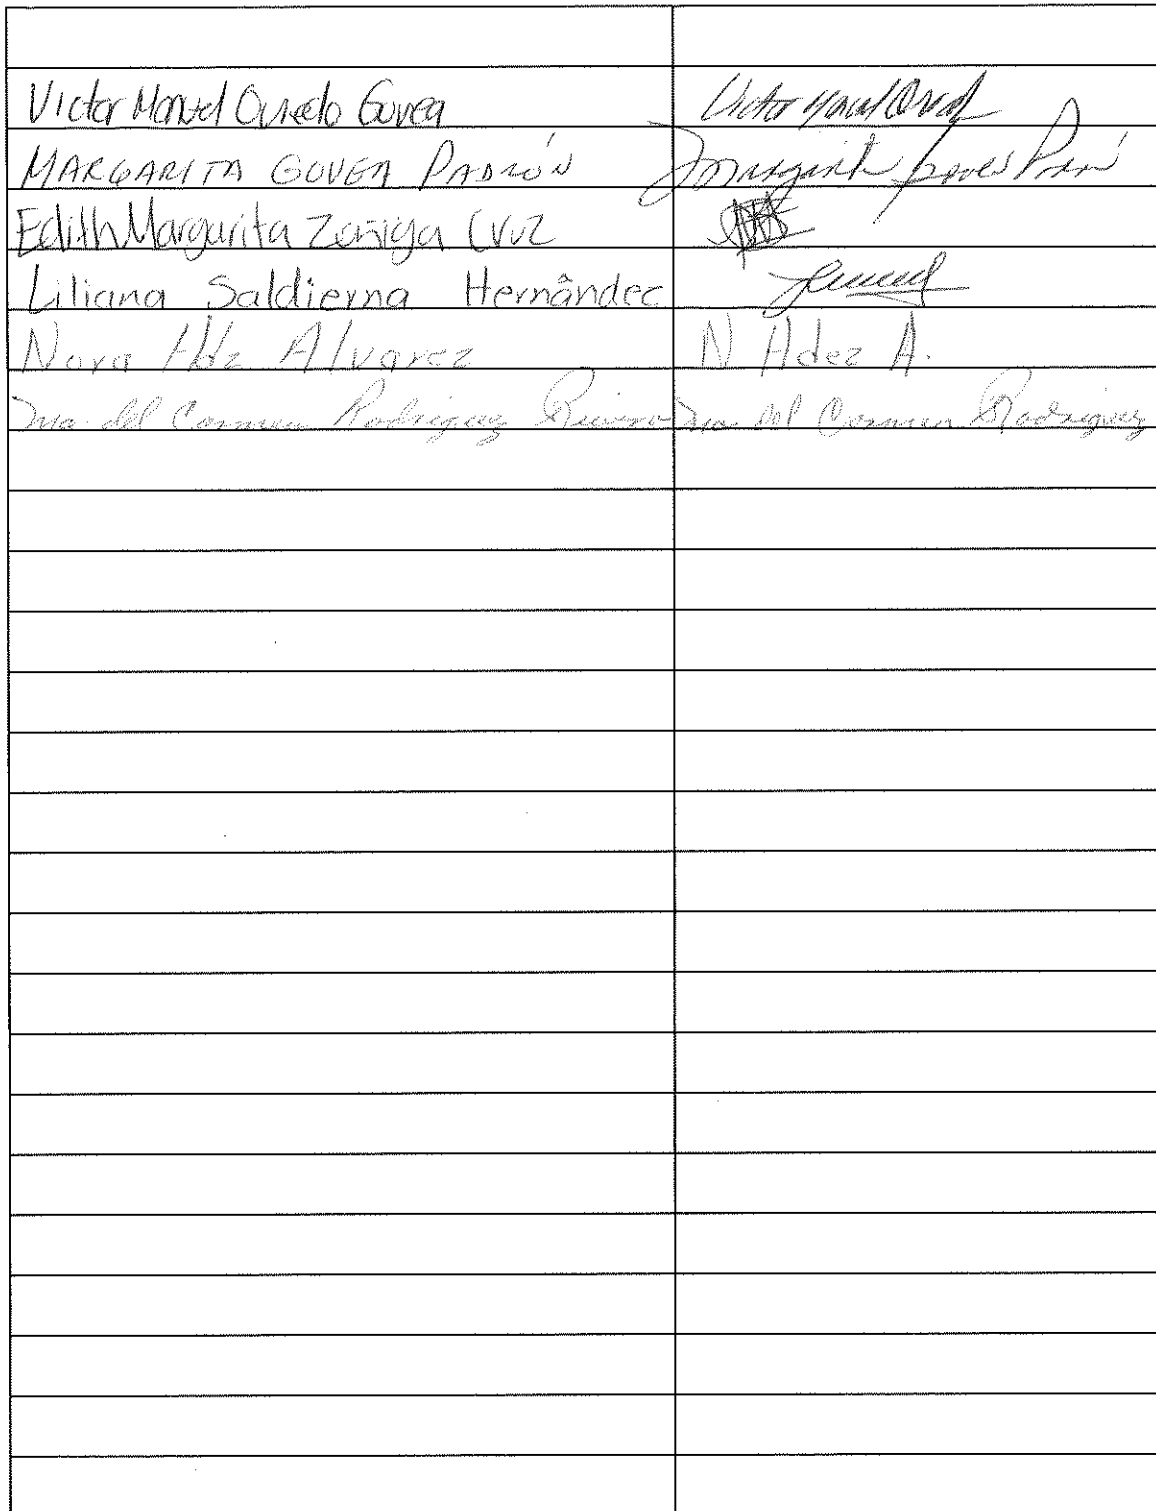 Victor Manuel Oviedo Govea Victor Manuel
MARGARITA GOVEA PADRÓN Margarita Govea
Edith Margarita Zuñiga Cruz
Liliana Saldierna Hernández
Nora Hdz Alvarez N Hdez A.
Ma. del Carmen Rodriguez Rivera Ma del Carmen Rodriguez